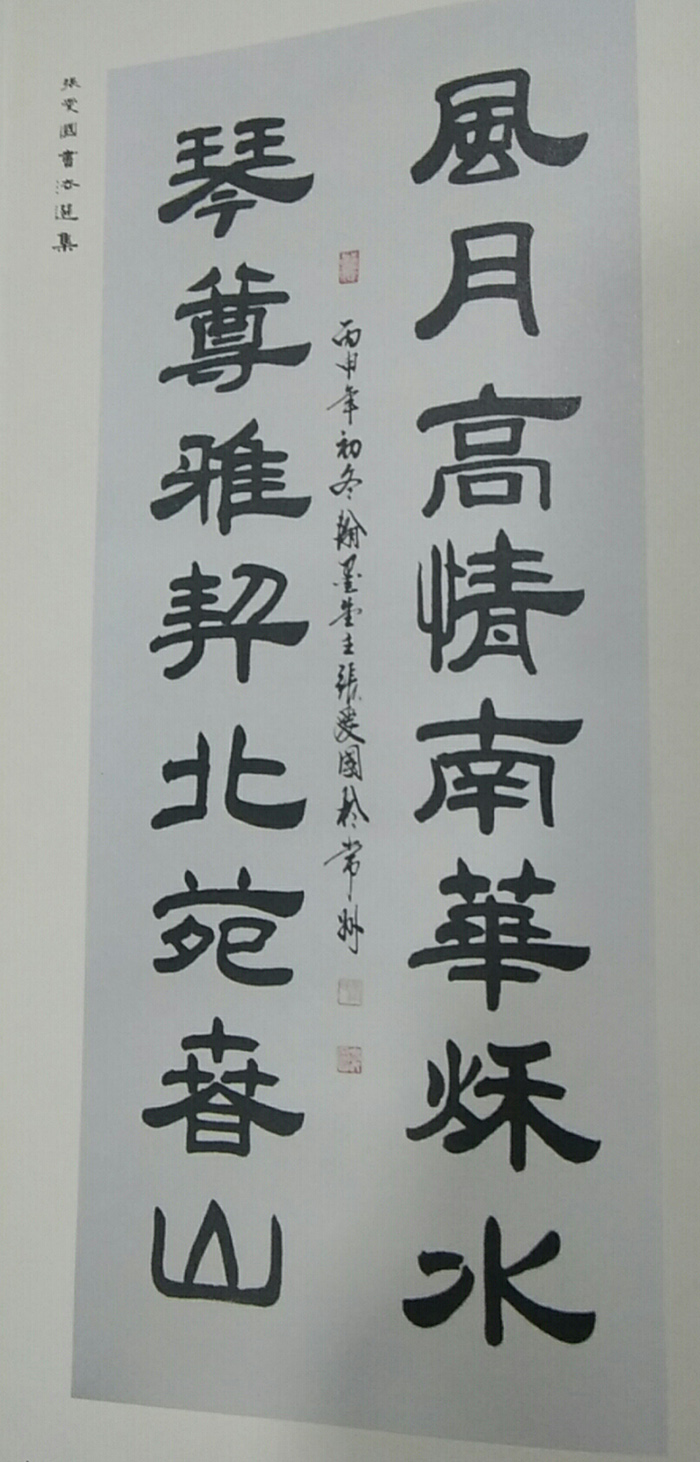 風月高情南華秌水
丙申年初冬翰墨堂主張愛國於常州
琴尊雅契北苑春山
張愛國書法選集